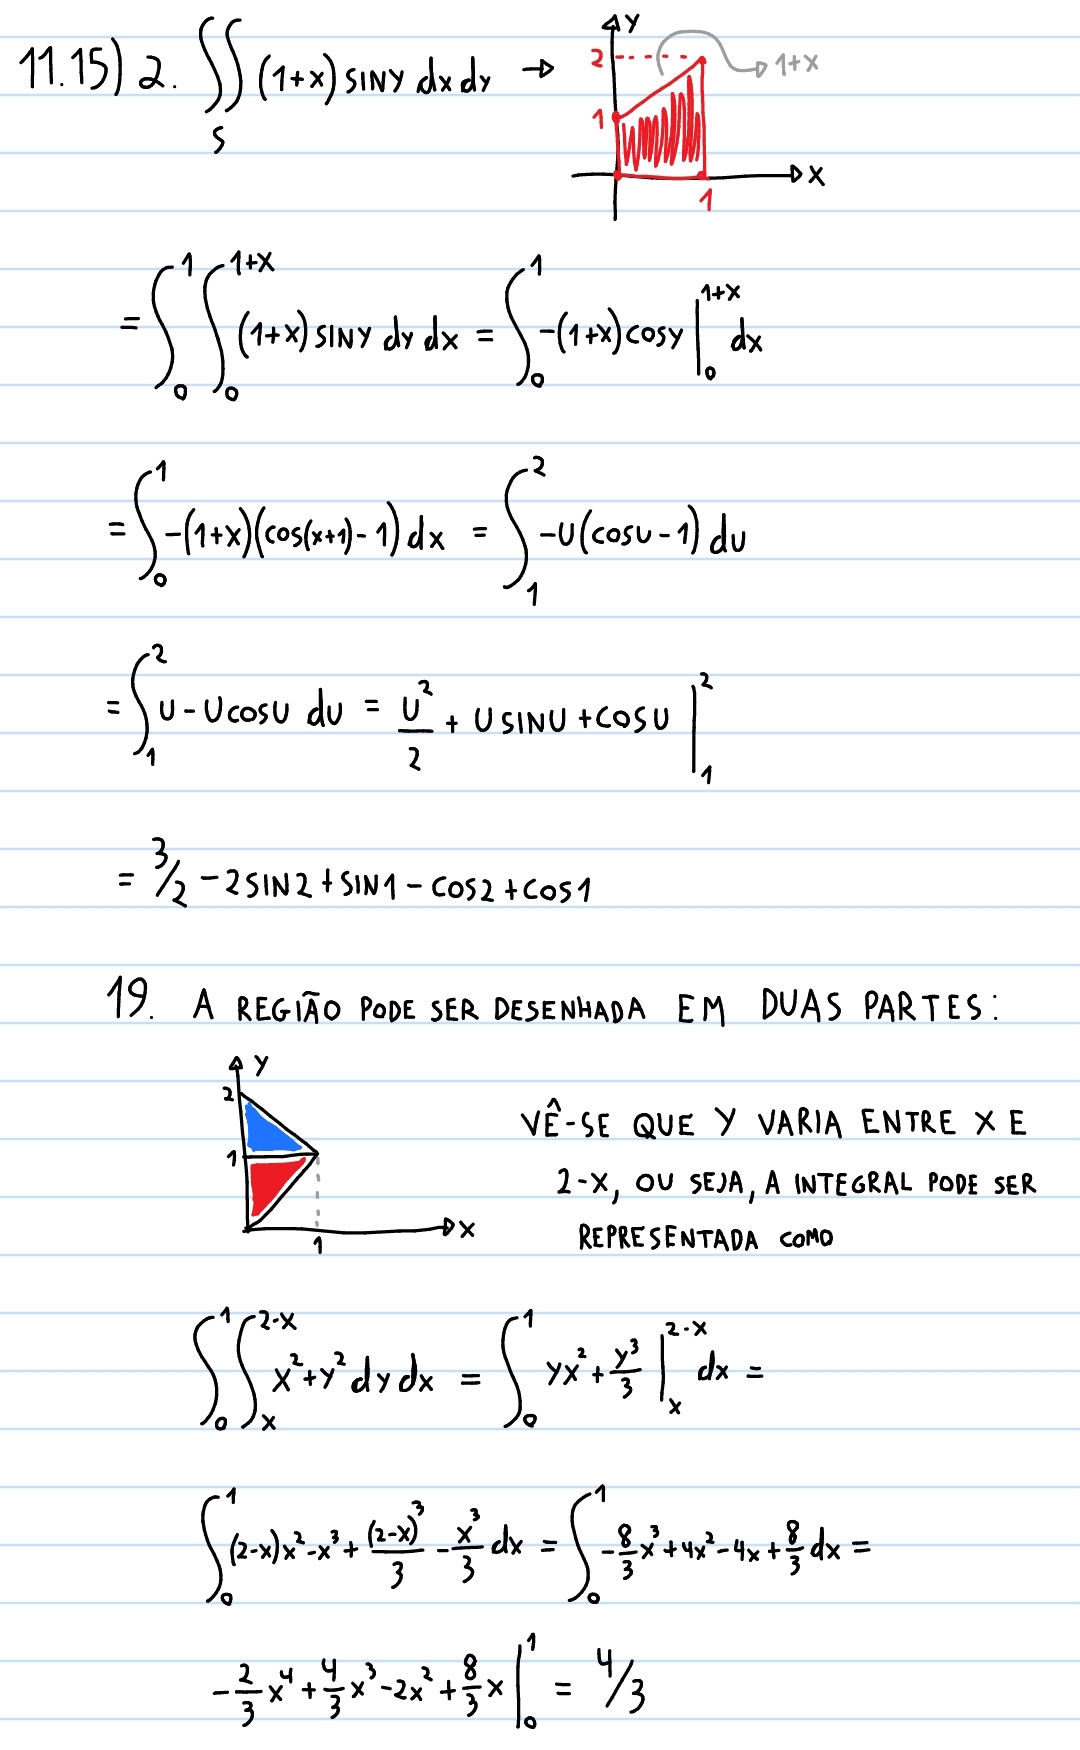 11.15) 2. ∬_S (1+x) SINY dx dy →
Y
2
→ 1+X
1
X
1
= ∫_0^1 ∫_0^{1+X} (1+X) SINY dy dx = ∫_0^1 -(1+X) COSY |_0^{1+X} dx
= ∫_0^1 -(1+X)(COS(X+1)-1) dx = ∫_1^2 -U(COSU-1) dU
= ∫_1^2 U - U COSU dU = U²/2 + U SINU + COSU |_1^2
= 3/2 - 2 SIN2 + SIN1 - COS2 + COS1
19. A REGIÃO PODE SER DESENHADA EM DUAS PARTES:
Y
2
1
X
1
VÊ-SE QUE Y VARIA ENTRE X E
2-X, OU SEJA, A INTEGRAL PODE SER
REPRESENTADA COMO
∫_0^1 ∫_X^{2-X} X²+Y² dy dx = ∫_0^1 YX² + Y³/3 |_X^{2-X} dx =
∫_0^1 (2-X)X² - X³ + (2-X)³/3 - X³/3 dx = ∫_0^1 -8/3 X³ + 4X² - 4X + 8/3 dx =
-2/3 X⁴ + 4/3 X³ - 2X² + 8/3 X |_0^1 = 4/3